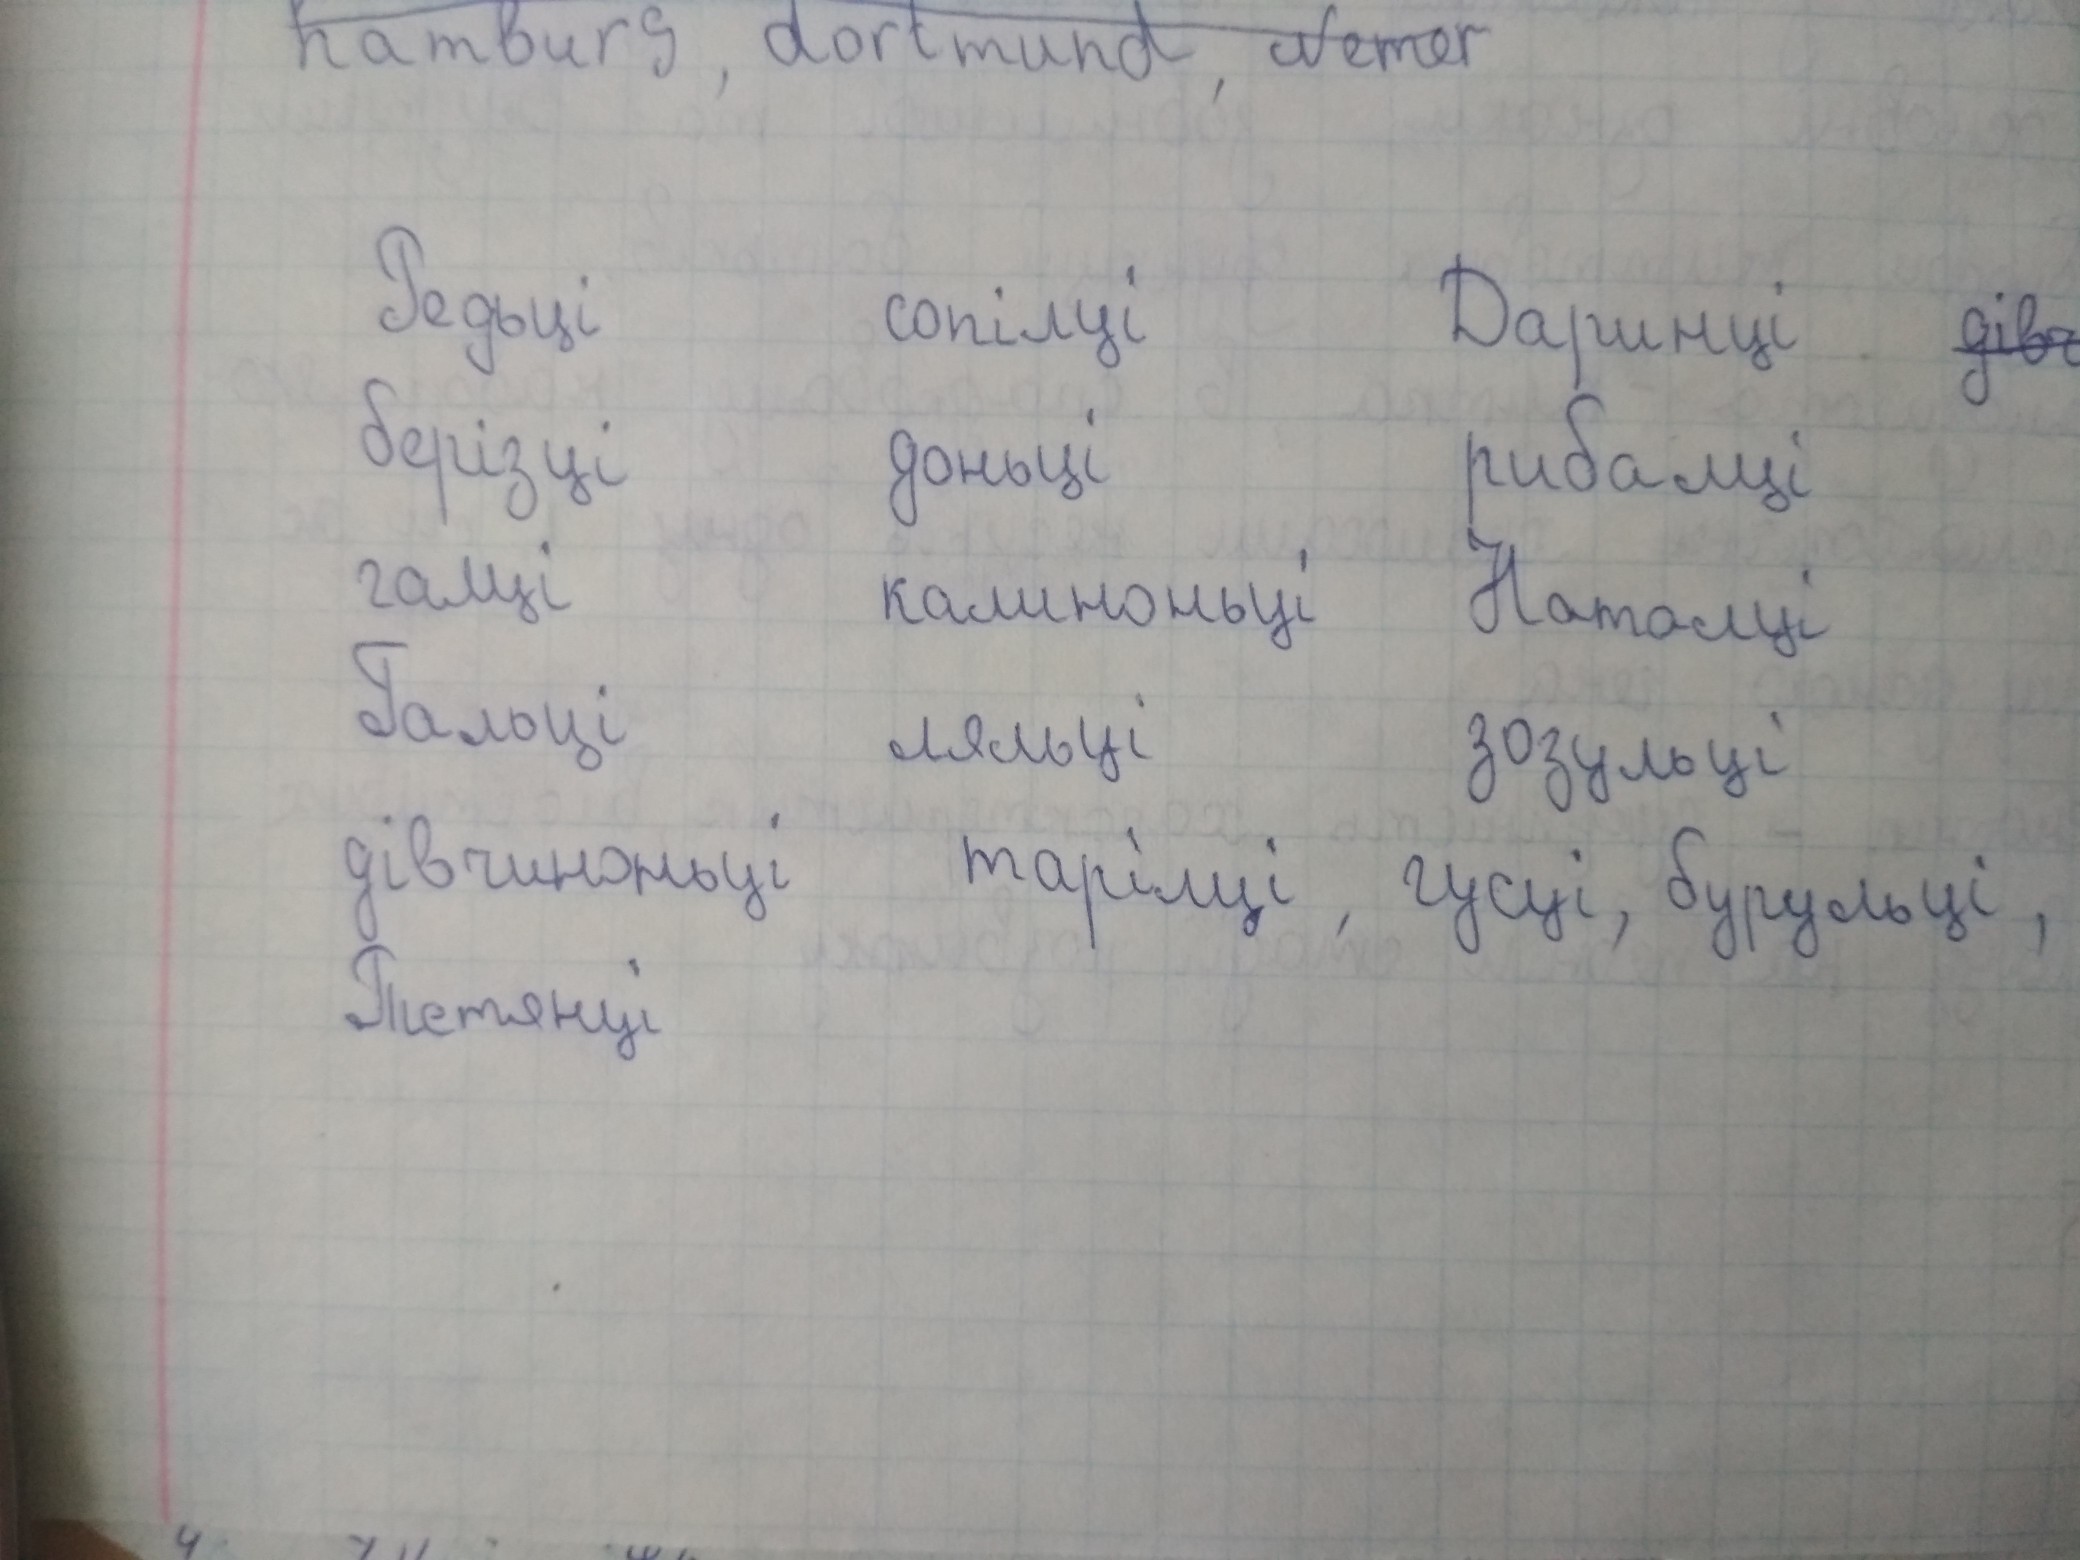 hamburg, dortmund, Nemer
Редьці сопілці Даринці
берізці доньці рибалці
галці калиноньці Наталці
Гальці ляльці зозульці
дівчиноньці тарілці, гусці, бурульці,
Тетянці